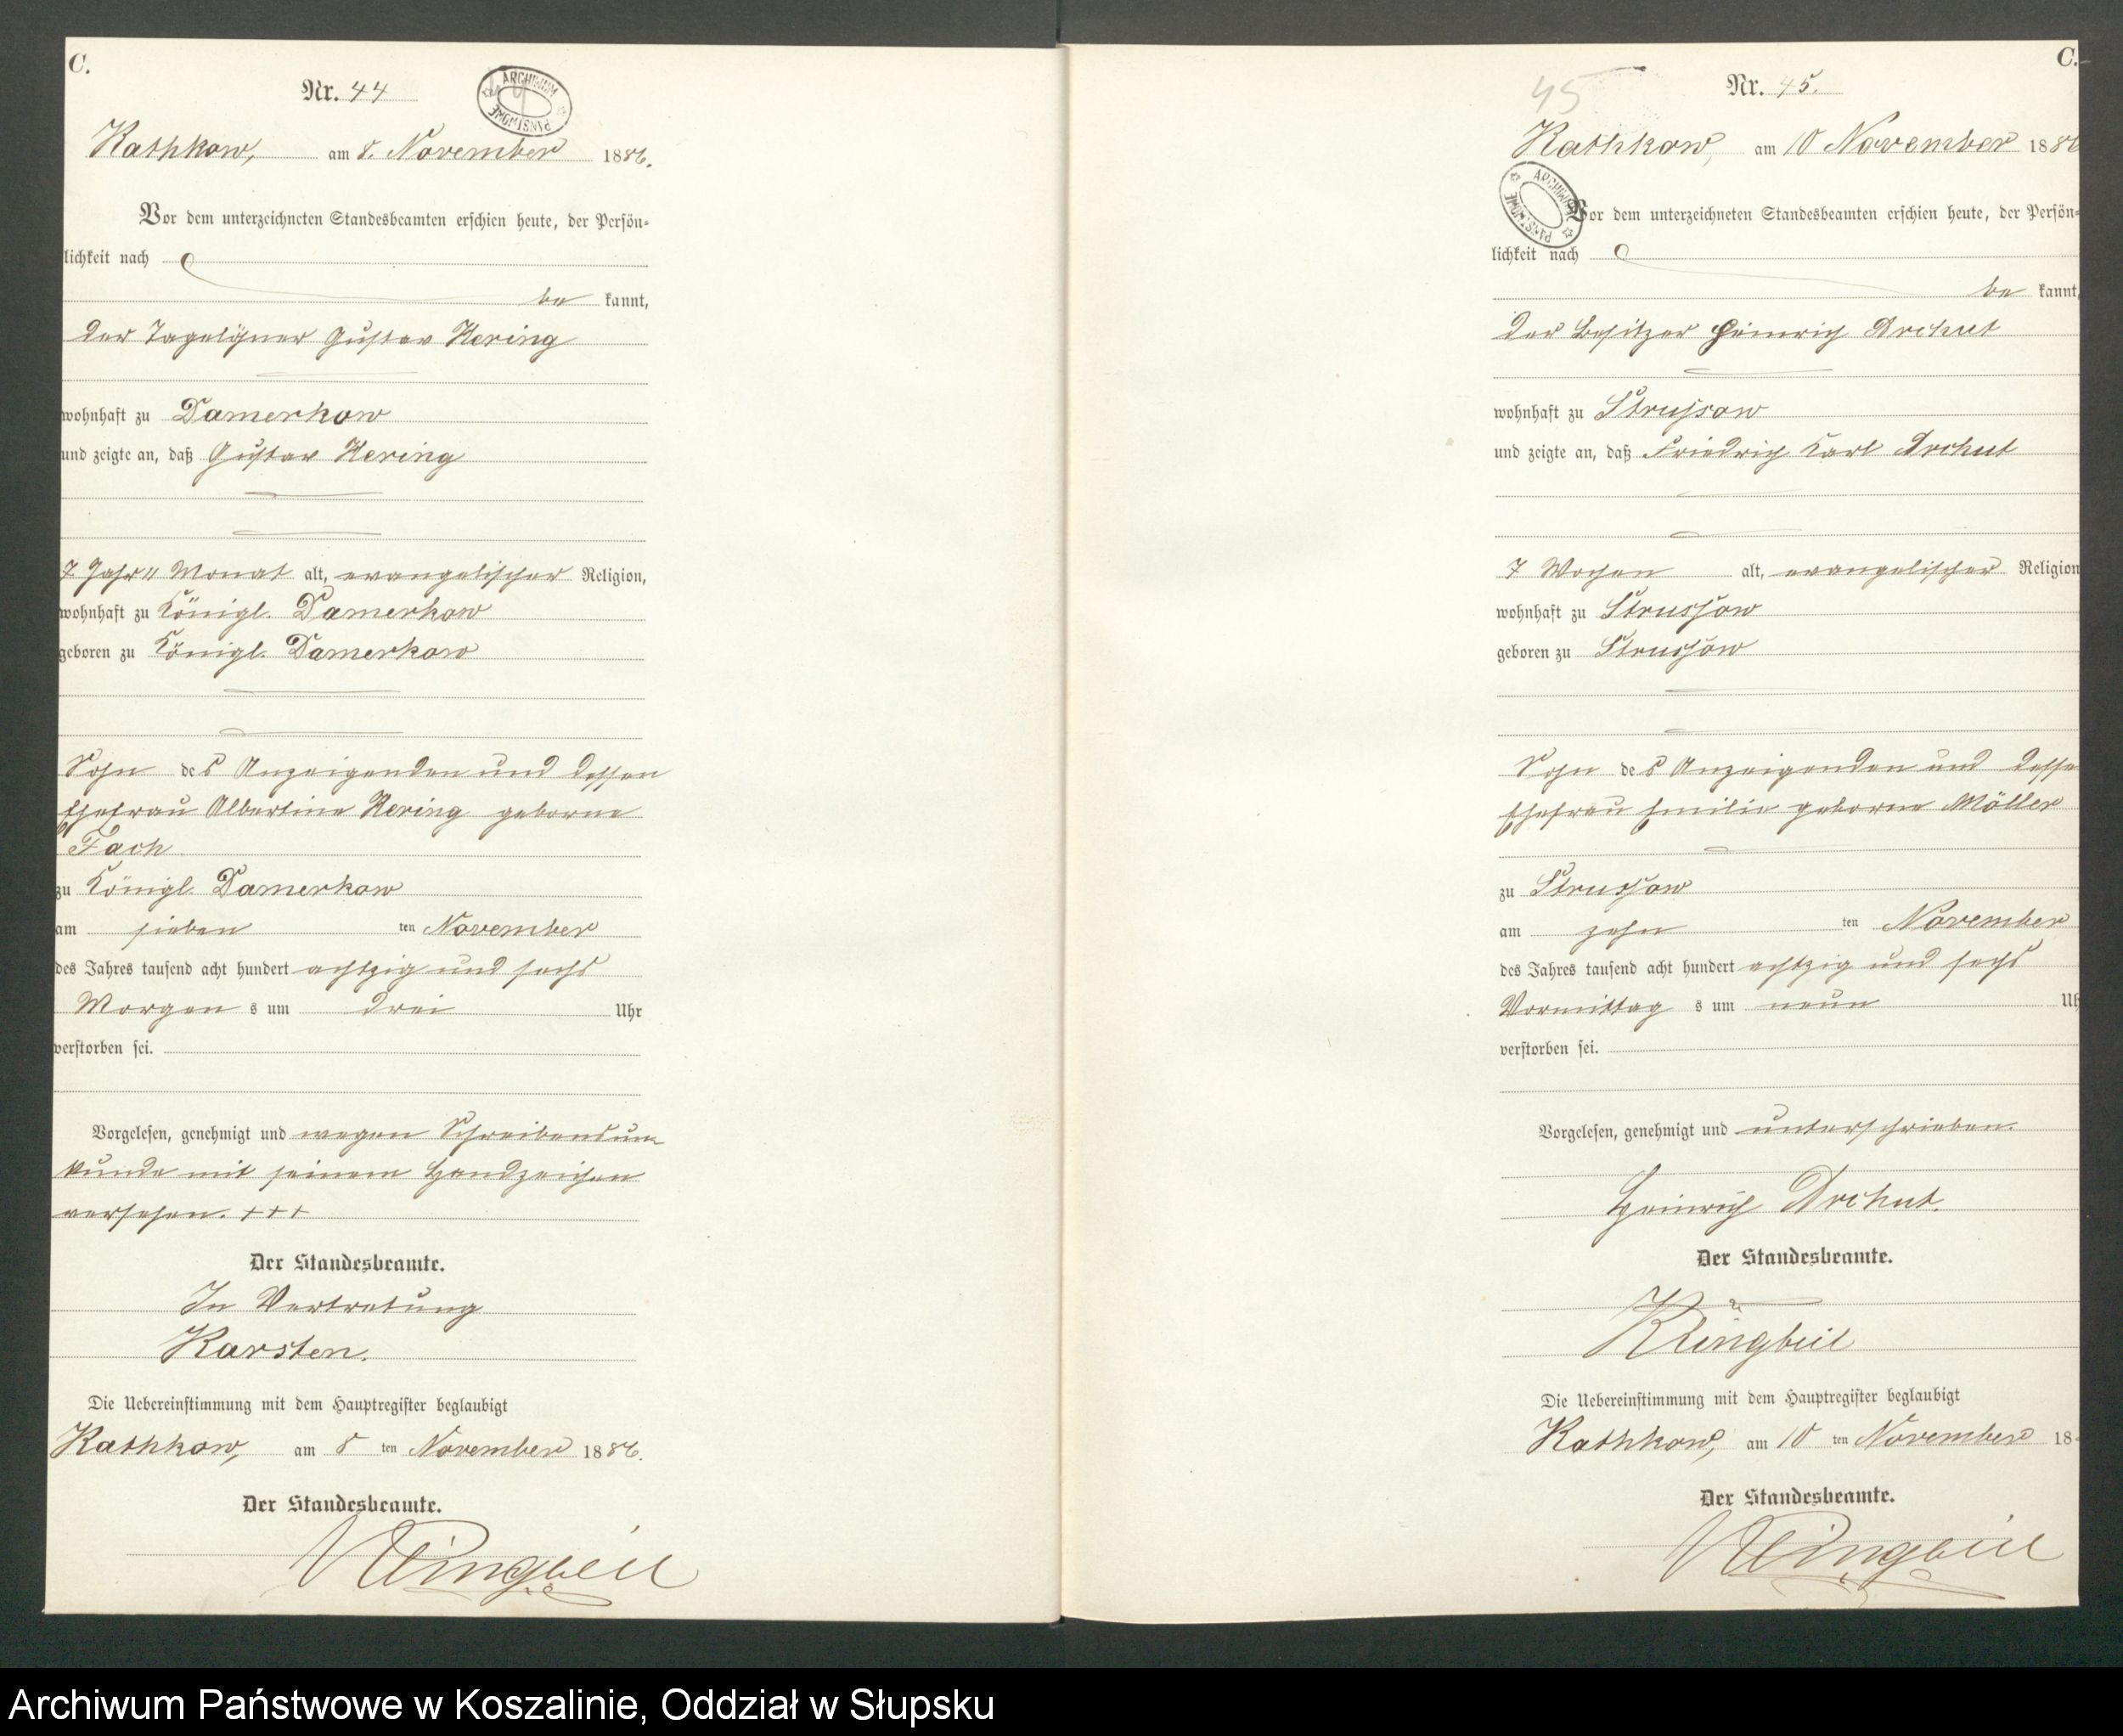 C.
Nr. 44
ARCHIWUM PAŃSTWOWE
Kathkow, am 8. November 1886.
Vor dem unterzeichneten Standesbeamten erschien heute, der Persön-
lichkeit nach
be kannt,
der Tagelöhner Gustav Hering
wohnhaft zu Damerkow
und zeigte an, daß Gustav Hering
7 Jahr 11 Monat alt, evangelischer Religion,
wohnhaft zu Königl. Damerkow
geboren zu Königl. Damerkow
Sohn des Anzeigenden und dessen
Ehefrau Albertine Hering geborne
Fach
zu Königl. Damerkow
am sieben ten November
des Jahres tausend acht hundert achtzig und sechs
Morgen s um drei Uhr
verstorben sei.
Vorgelesen, genehmigt und wegen Schreibensun-
kunde mit seinem Handzeichen
versehen. +++
Der Standesbeamte.
In Vertretung
Karsten.
Die Uebereinstimmung mit dem Hauptregister beglaubigt
Kathkow, am 8 ten November 1886.
Der Standesbeamte.
Klingbeil
C.
45
Nr. 45.
Kathkow, am 10 November 1886
ARCHIWUM PAŃSTWOWE
Vor dem unterzeichneten Standesbeamten erschien heute, der Persön-
lichkeit nach
be kannt,
der Besitzer Heinrich Archut
wohnhaft zu Strussow
und zeigte an, daß Friedrich Karl Archut
7 Wochen alt, evangelischer Religion
wohnhaft zu Strussow
geboren zu Strussow
Sohn des Anzeigenden und desse
Ehefrau Emilie geborne Möller
zu Strussow
am zehn ten November
des Jahres tausend acht hundert achtzig und sechs
Vormittag s um neun Uh
verstorben sei.
Vorgelesen, genehmigt und unterschrieben.
Heinrich Archut.
Der Standesbeamte.
Klingbeil
Die Uebereinstimmung mit dem Hauptregister beglaubigt
Kathkow, am 10 ten November 18
Der Standesbeamte.
Klingbeil
Archiwum Państwowe w Koszalinie, Oddział w Słupsku